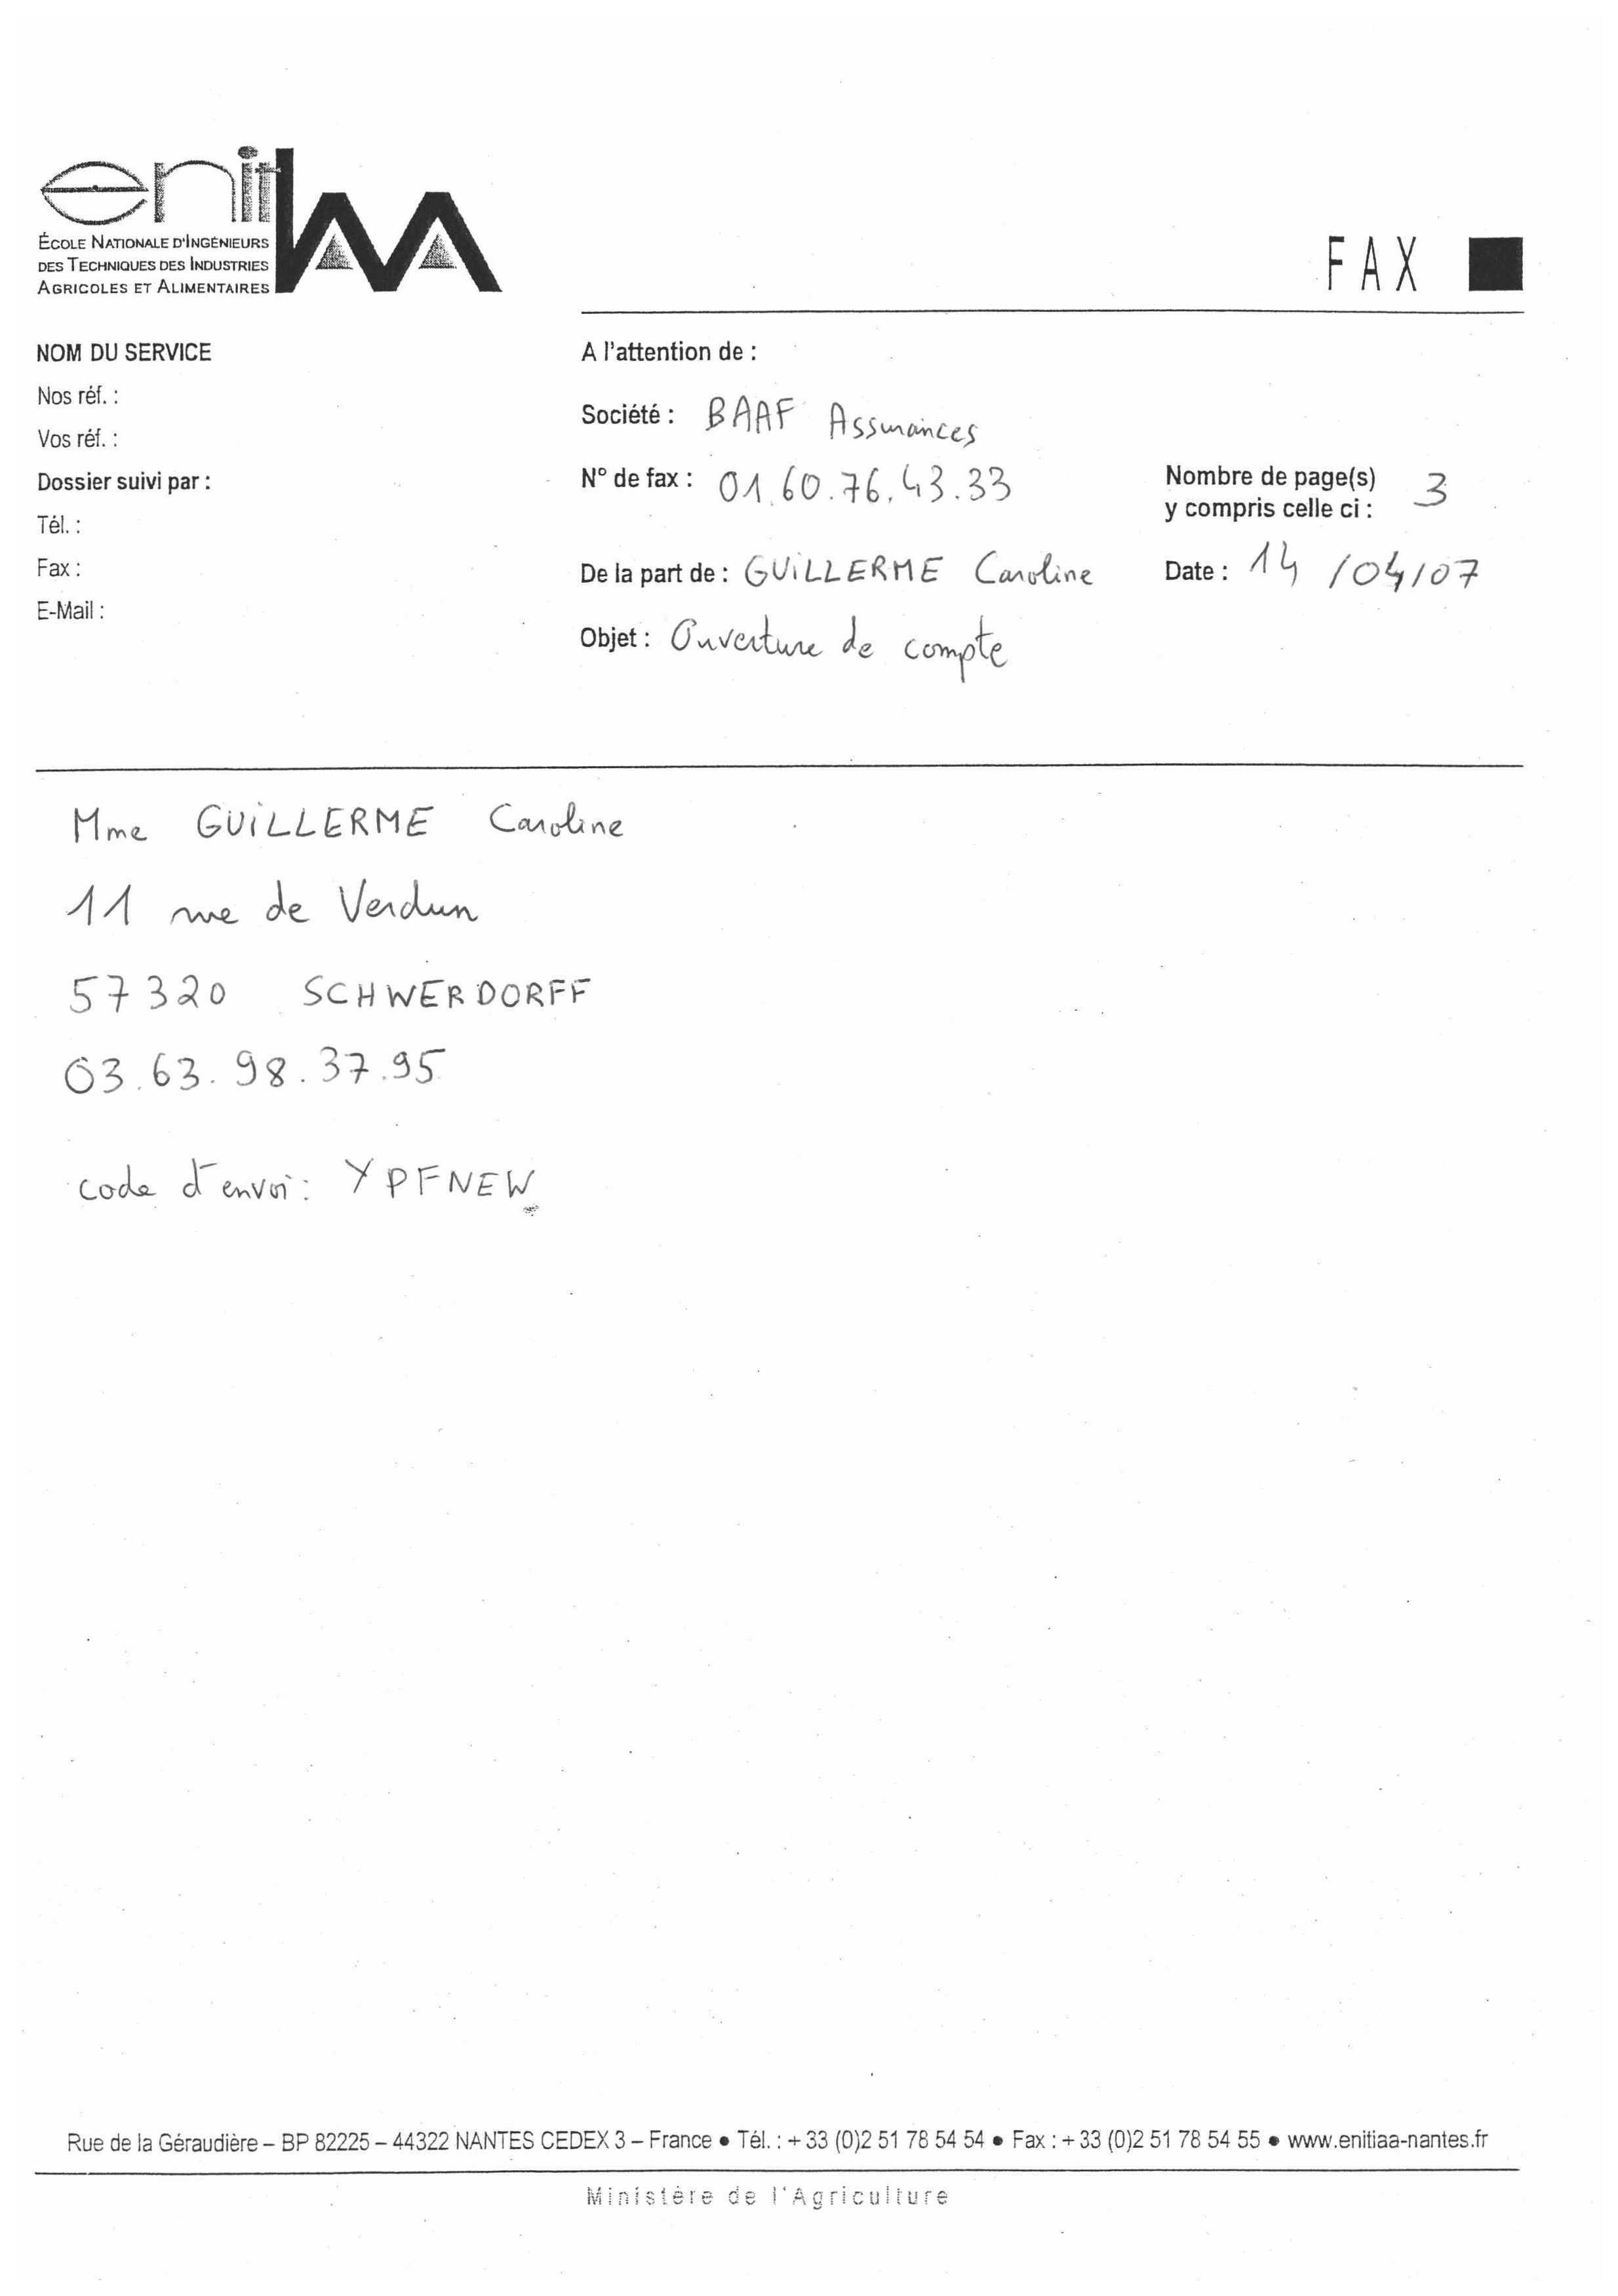 enitIAA
ÉCOLE NATIONALE D'INGÉNIEURS
DES TECHNIQUES DES INDUSTRIES
AGRICOLES ET ALIMENTAIRES
FAX
NOM DU SERVICE
Nos réf. :
Vos réf. :
Dossier suivi par :
Tél. :
Fax :
E-Mail :
A l'attention de :
Société : BAAF Assurances
N° de fax : 01.60.76.43.33
De la part de : GUILLERME Caroline
Objet : Ouverture de compte
Nombre de page(s)
y compris celle ci : 3
Date : 14/04/07
Mme GUILLERME Caroline
11 rue de Verdun
57320 SCHWERDORFF
03.63.98.37.95
code d'envoi: YPFNEW
Rue de la Géraudière – BP 82225 – 44322 NANTES CEDEX 3 – France • Tél. : + 33 (0)2 51 78 54 54 • Fax : + 33 (0)2 51 78 54 55 • www.enitiaa-nantes.fr
Ministère de l'Agriculture